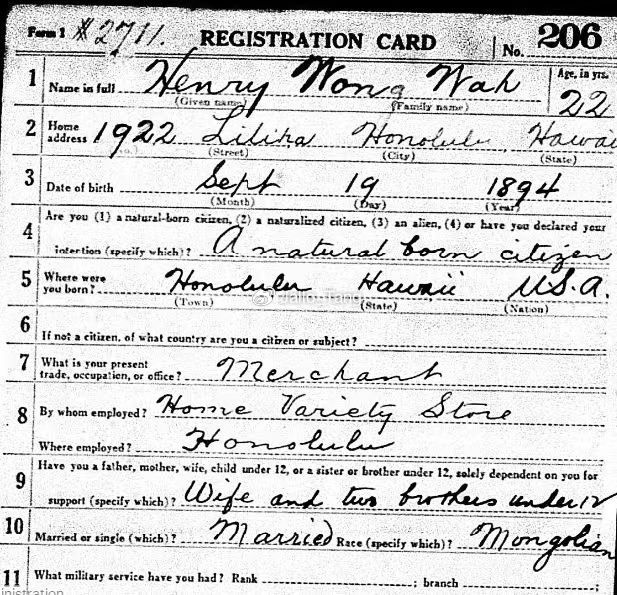 Form 1 #2711. REGISTRATION CARD No. 206
1 Name in full Henry Wong Wah Age, in yrs.
(Given name) (Family name) 22
2 Home address 1922 Liliha Honolulu Hawaii
(No.) (Street) (City) (State)
3 Date of birth Sept 19 1894
(Month) (Day) (Year)
Are you (1) a natural-born citizen, (2) a naturalized citizen, (3) an alien, (4) or have you declared your
4 intention (specify which)? A natural born citizen
5 Where were you born? Honolulu Hawaii U.S.A.
(Town) (State) (Nation)
6 If not a citizen, of what country are you a citizen or subject?
7 What is your present trade, occupation, or office? Merchant
8 By whom employed? Home Variety Store
Where employed? Honolulu
Have you a father, mother, wife, child under 12, or a sister or brother under 12, solely dependent on you for
9 support (specify which)? Wife and two brothers under 12
10 Married or single (which)? Married Race (specify which)? Mongolian
11 What military service have you had? Rank ; branch ;